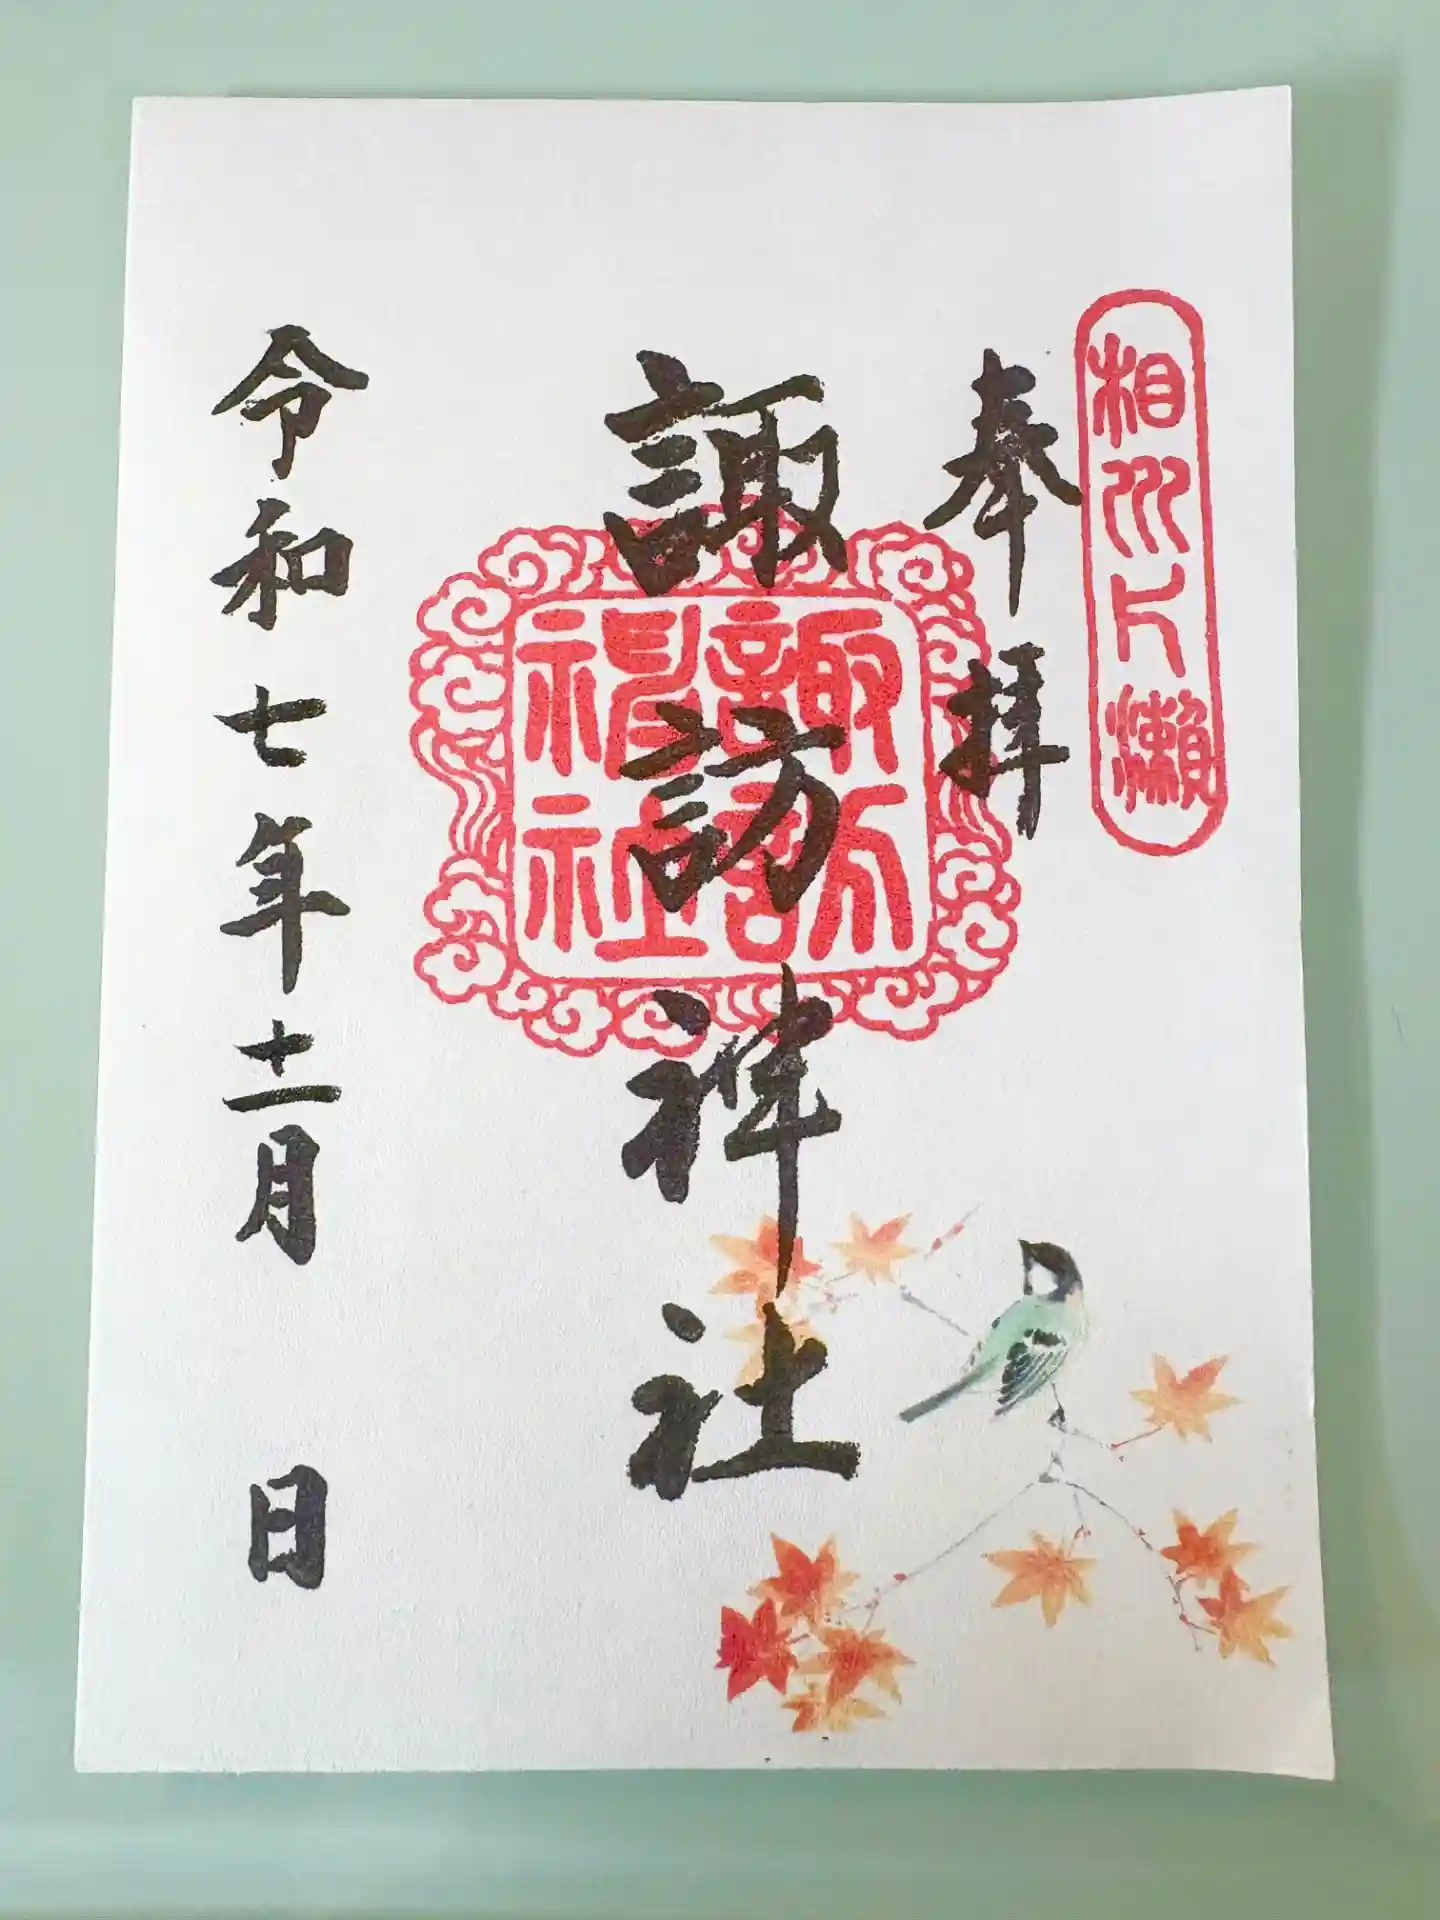 相州片瀬
奉拝
諏訪神社
諏訪
神社
令和七年十二月 日